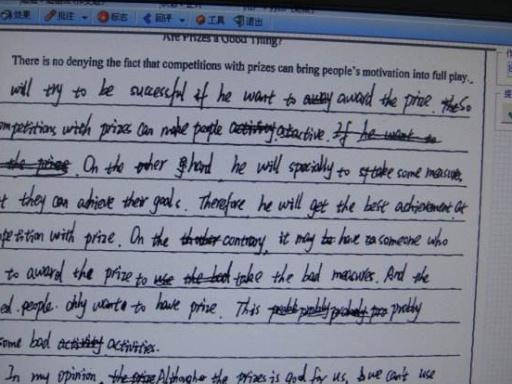 效果 批注 标志 回评 工具 退出
Are Prizes a Good Thing?
There is no denying the fact that competitions with prizes can bring people's motivation into full play.
will try to be successful if he want to award the prize. So
mpetitions with prizes can make people active. If he want to
the prize. On the other hand he will specially to take some measure.
t they can achieve their goals. Therefore he will get the best achievement at
petition with prize. On the contrary, it may have someone who
to award the prize to take the bad measures. And the
ed. people. only want to have prize. This probly
some bad activities.
In my opinion, Although the prizes is god for us, b we can't use